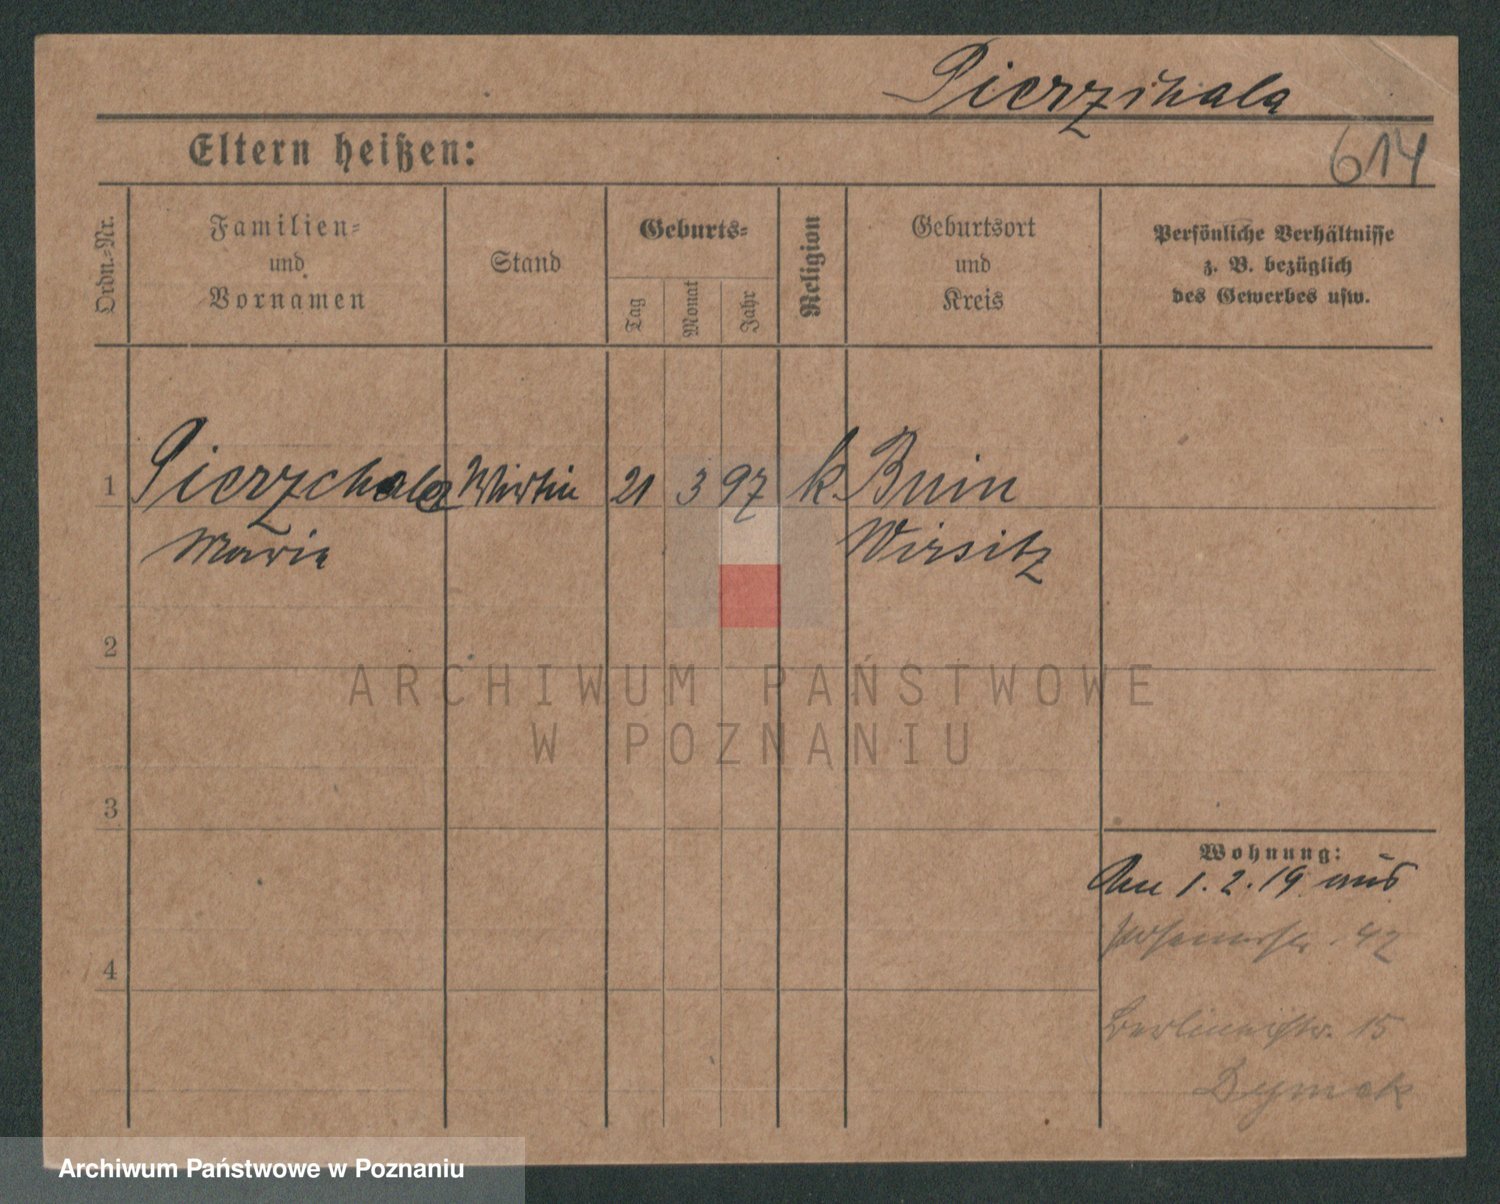 Pierzchala
614
Eltern heißen:
Ordn.-Nr.
Familien-
und
Vornamen
Stand
Geburts-
Tag
Monat
Jahr
Religion
Geburtsort
und
Kreis
Persönliche Verhältnisse
z. B. bezüglich
des Gewerbes usw.
1 Pierzchala Wirtin 21 3 97 k. Bnin
Marie Wirsitz
2
3
4
Wohnung:
Am 1.2.19 aus
42
Berlinerstr. 15
Dymek
ARCHIWUM PAŃSTWOWE
W POZNANIU
Archiwum Państwowe w Poznaniu